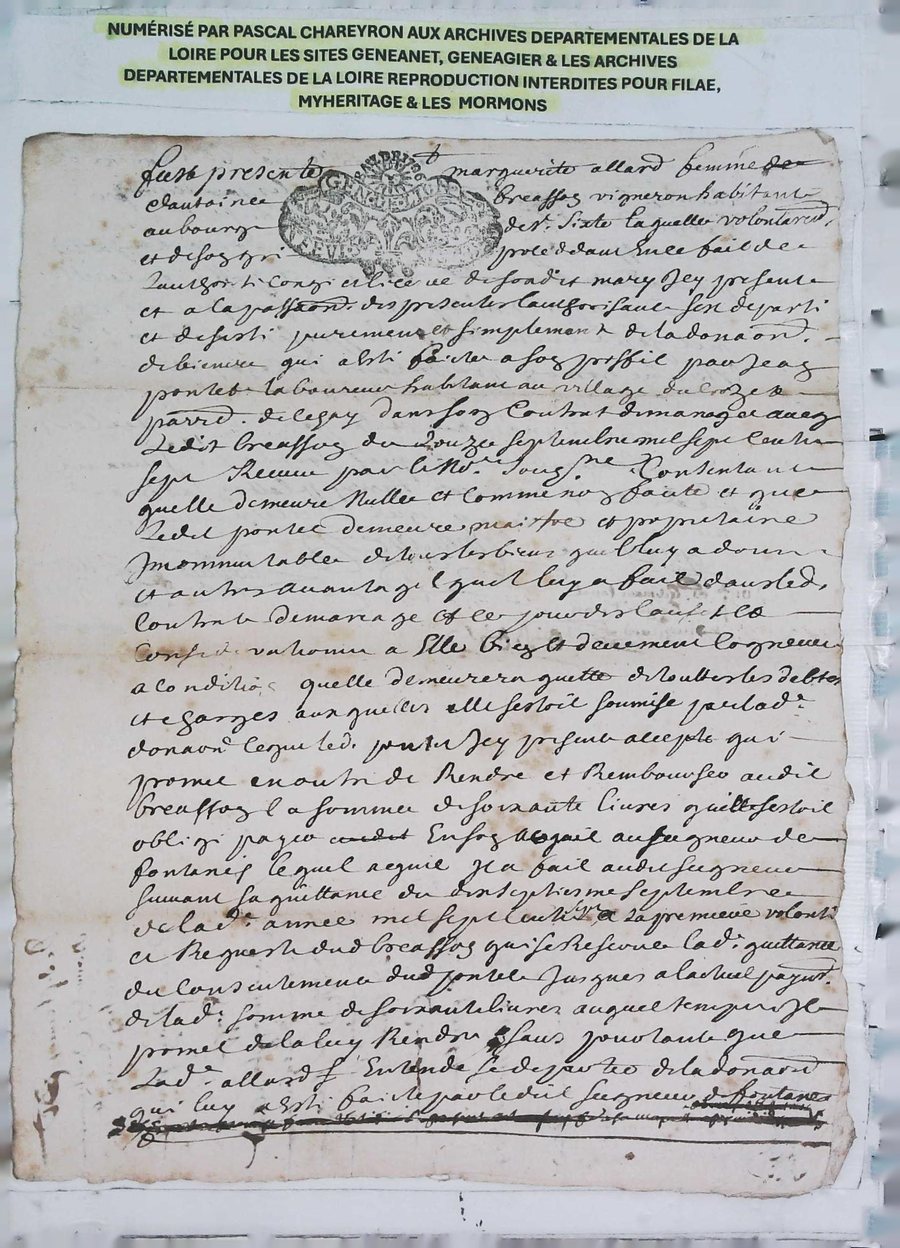 NUMÉRISÉ PAR PASCAL CHAREYRON AUX ARCHIVES DEPARTEMENTALES DE LA
LOIRE POUR LES SITES GENEANET, GENEAGIER & LES ARCHIVES
DEPARTEMENTALES DE LA LOIRE REPRODUCTION INTERDITES POUR FILAE,
MYHERITAGE & LES MORMONS
fust presente marguerite allard femme
breassoz vigneron habitante
au bourg de St. Sixte laquelle volontairemt.
et de soy gré
authorité congé et licence de son dit mary Jcy presente
et a la passaon. des presentes l'authorisant sest departi
et desisti purement et simplement de la donaon.
qui a esté faicte a son proffil par Jean
pontet laboureur habitant au village du
parr. de legny dans son Contrat de mariage avec
Ledit breassoz du douze septembre mil sept cents
sept Receu par le No.re Soug.né Consentant
quelle demeure Nulle et comme non faite et que
Ledit pontet demeure maistre et proprietaire
Jmommutable de tous les biens quil luy a donné
et autres avantages quil luy a fait dans led.
Contrat de mariage et ce
a Elle bien et deuement cogneue
a condition quelle demeurera quitte de touttes les debtes
et charges aux quelles elle sestoit soumise par lad.e
donaon. ce que led. pontet Jcy present accepte qui
promet en outre de Rendre et Rembourser audit
breassoz la somme de soixante livres quil sestoit
obligé payer En son acquit au seigneur de
fontanes lequel acquit Jl a fait audit seigneur
suivant sa quittance du dixseptiesme septembre
de lad.e année mil sept cents sept a La premiere volonté
et Requeste dud. breassoz qui se Reserve lad.e quittance
du Consentement dud. pontet Jusques a lactuel payemt.
de lad.e somme de soixante livres auquel temps Jl
promet de la luy Rendre sans pourtant que
Lad.e allard Entende se departir de la donaon.
qui luy a esté faicte par ledit seigneur de fontanes